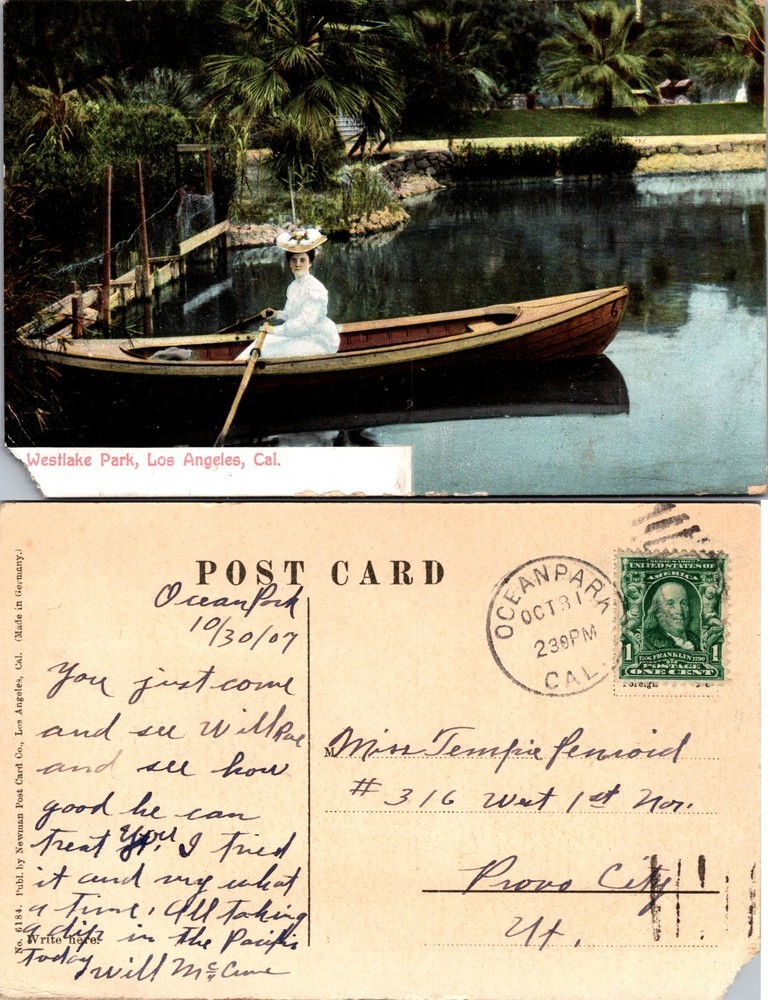 6
Westlake Park, Los Angeles, Cal.
POST CARD
No. 6184. Publ. by Newman Post Card Co., Los Angeles, Cal. (Made in Germany.)
Ocean Park
10/30/07
You just come
and see Will
and see how
good he can
treat you. I tried
it and my what
a time. All taking
a dip in the Pacific
Write here.
today
Will McCune
OCEANPARK
OCT 31
230PM
CAL.
SERIES 1902
UNITED STATES OF
AMERICA
1 FRANKLIN 1790 1
POSTAGE
ONE CENT
Foreign
M Miss Tempie Penroid
# 316 West 1st Nor.
Provo City
Ut.